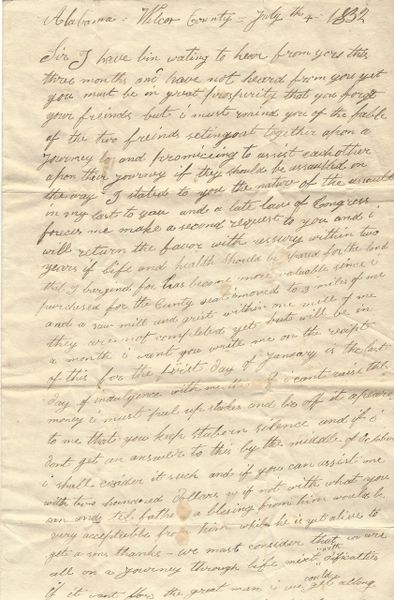 Alabama = Wilcox County = July th 4 - 1832
Sir I have bin wating to hear from yors this
three months and have not heard from you yet
you must be in great prosperity that you forgot
your freinds but i must remind you of the fable
of the two freinds seting out together upon a
Journey and promiceing to assist eachother
apon their journey if they should be assaulted on
the way - I stated to you the nature of the assault
in my last to you and a late law of Congress
forces me make a second request to you and i
will return the favor with ussury within two
years if life and health should be spared for the land
that I bargind for has become more valuable since i
purchased for the Cunty seat is moved to 3 miles of me
and a saw mill and grist within one mile of me
they are not completed yet but will be in
a month i want you write me on the recipt
of this for the first day of January is the last
day of indulgence with me if i cant raise this
money i must pul up stakes and be off it apears
to me that you keep stuborn silence and if i
dont get an answer to this by the middle of October
i shall cosider it such and if you can assist me
with two houndred dollars or if not with what you
can and tel father a blesing from him would be
very acceptible from him while he is yet alive to
get a sons thanks - we must consider that we are
all on a Journey through life mixt with dificulties
if it want for the great man i could get along